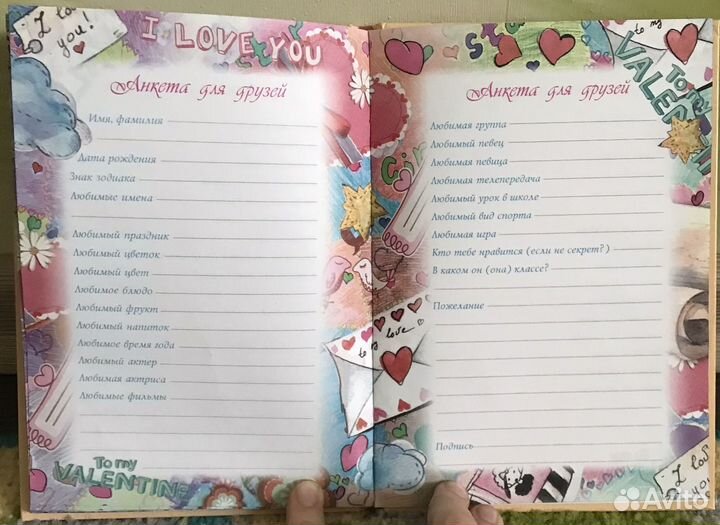 I lo
you!
I LOVE YOU
Анкета для друзей
Имя, фамилия
Дата рождения
Знак зодиака
Любимые имена
Любимый праздник
Любимый цветок
Любимый цвет
Любимое блюдо
Любимый фрукт
Любимый напиток
Любимое время года
Любимый актер
Любимая актриса
Любимые фильмы
To my
VALENTINE
to my
To my
VALENTINE
Анкета для друзей
Любимая группа
Любимый певец
Любимая певица
Любимая телепередача
Любимый урок в школе
Любимый вид спорта
Любимая игра
Кто тебе нравится (если не секрет?)
В каком он (она) классе?
Пожелание
to my love
Подпись
I lo
you!
Avito